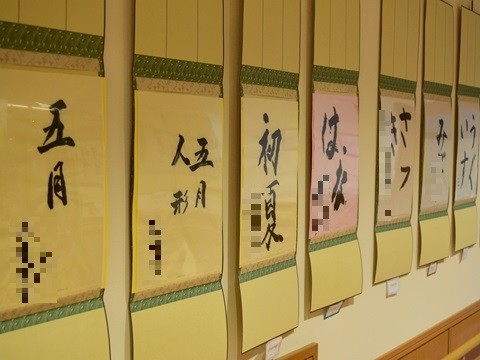 五月
五月
人形
初夏
はな
さつ
き
うぐ
いす